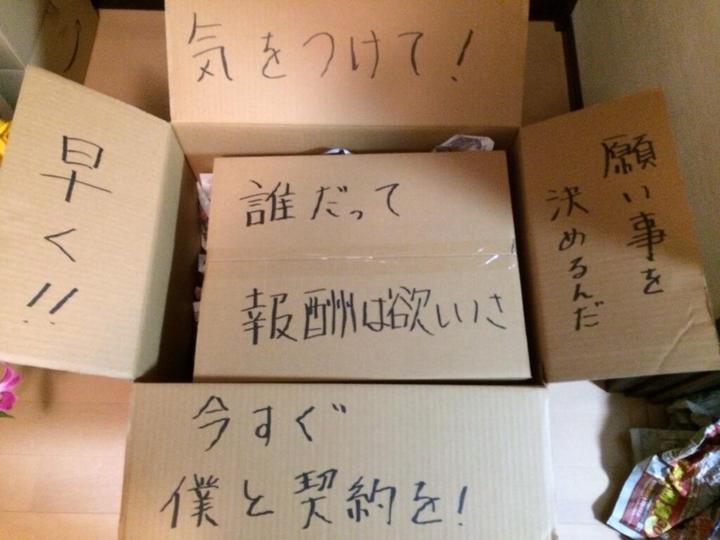 気をつけて!
早く!!
誰だって
報酬は欲しいさ
願い事を
決めるんだ
今すぐ
僕と契約を!